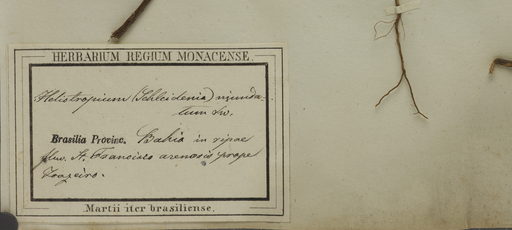 HERBARIUM REGIUM MONACENSE
Heliotropium (Schleidenia) inunda-
tum Sw.
Brasilia Provinc. Bahia in ripae
fluv. S. Francisco arenosis prope
Joazeiro.
Martii iter brasiliense.